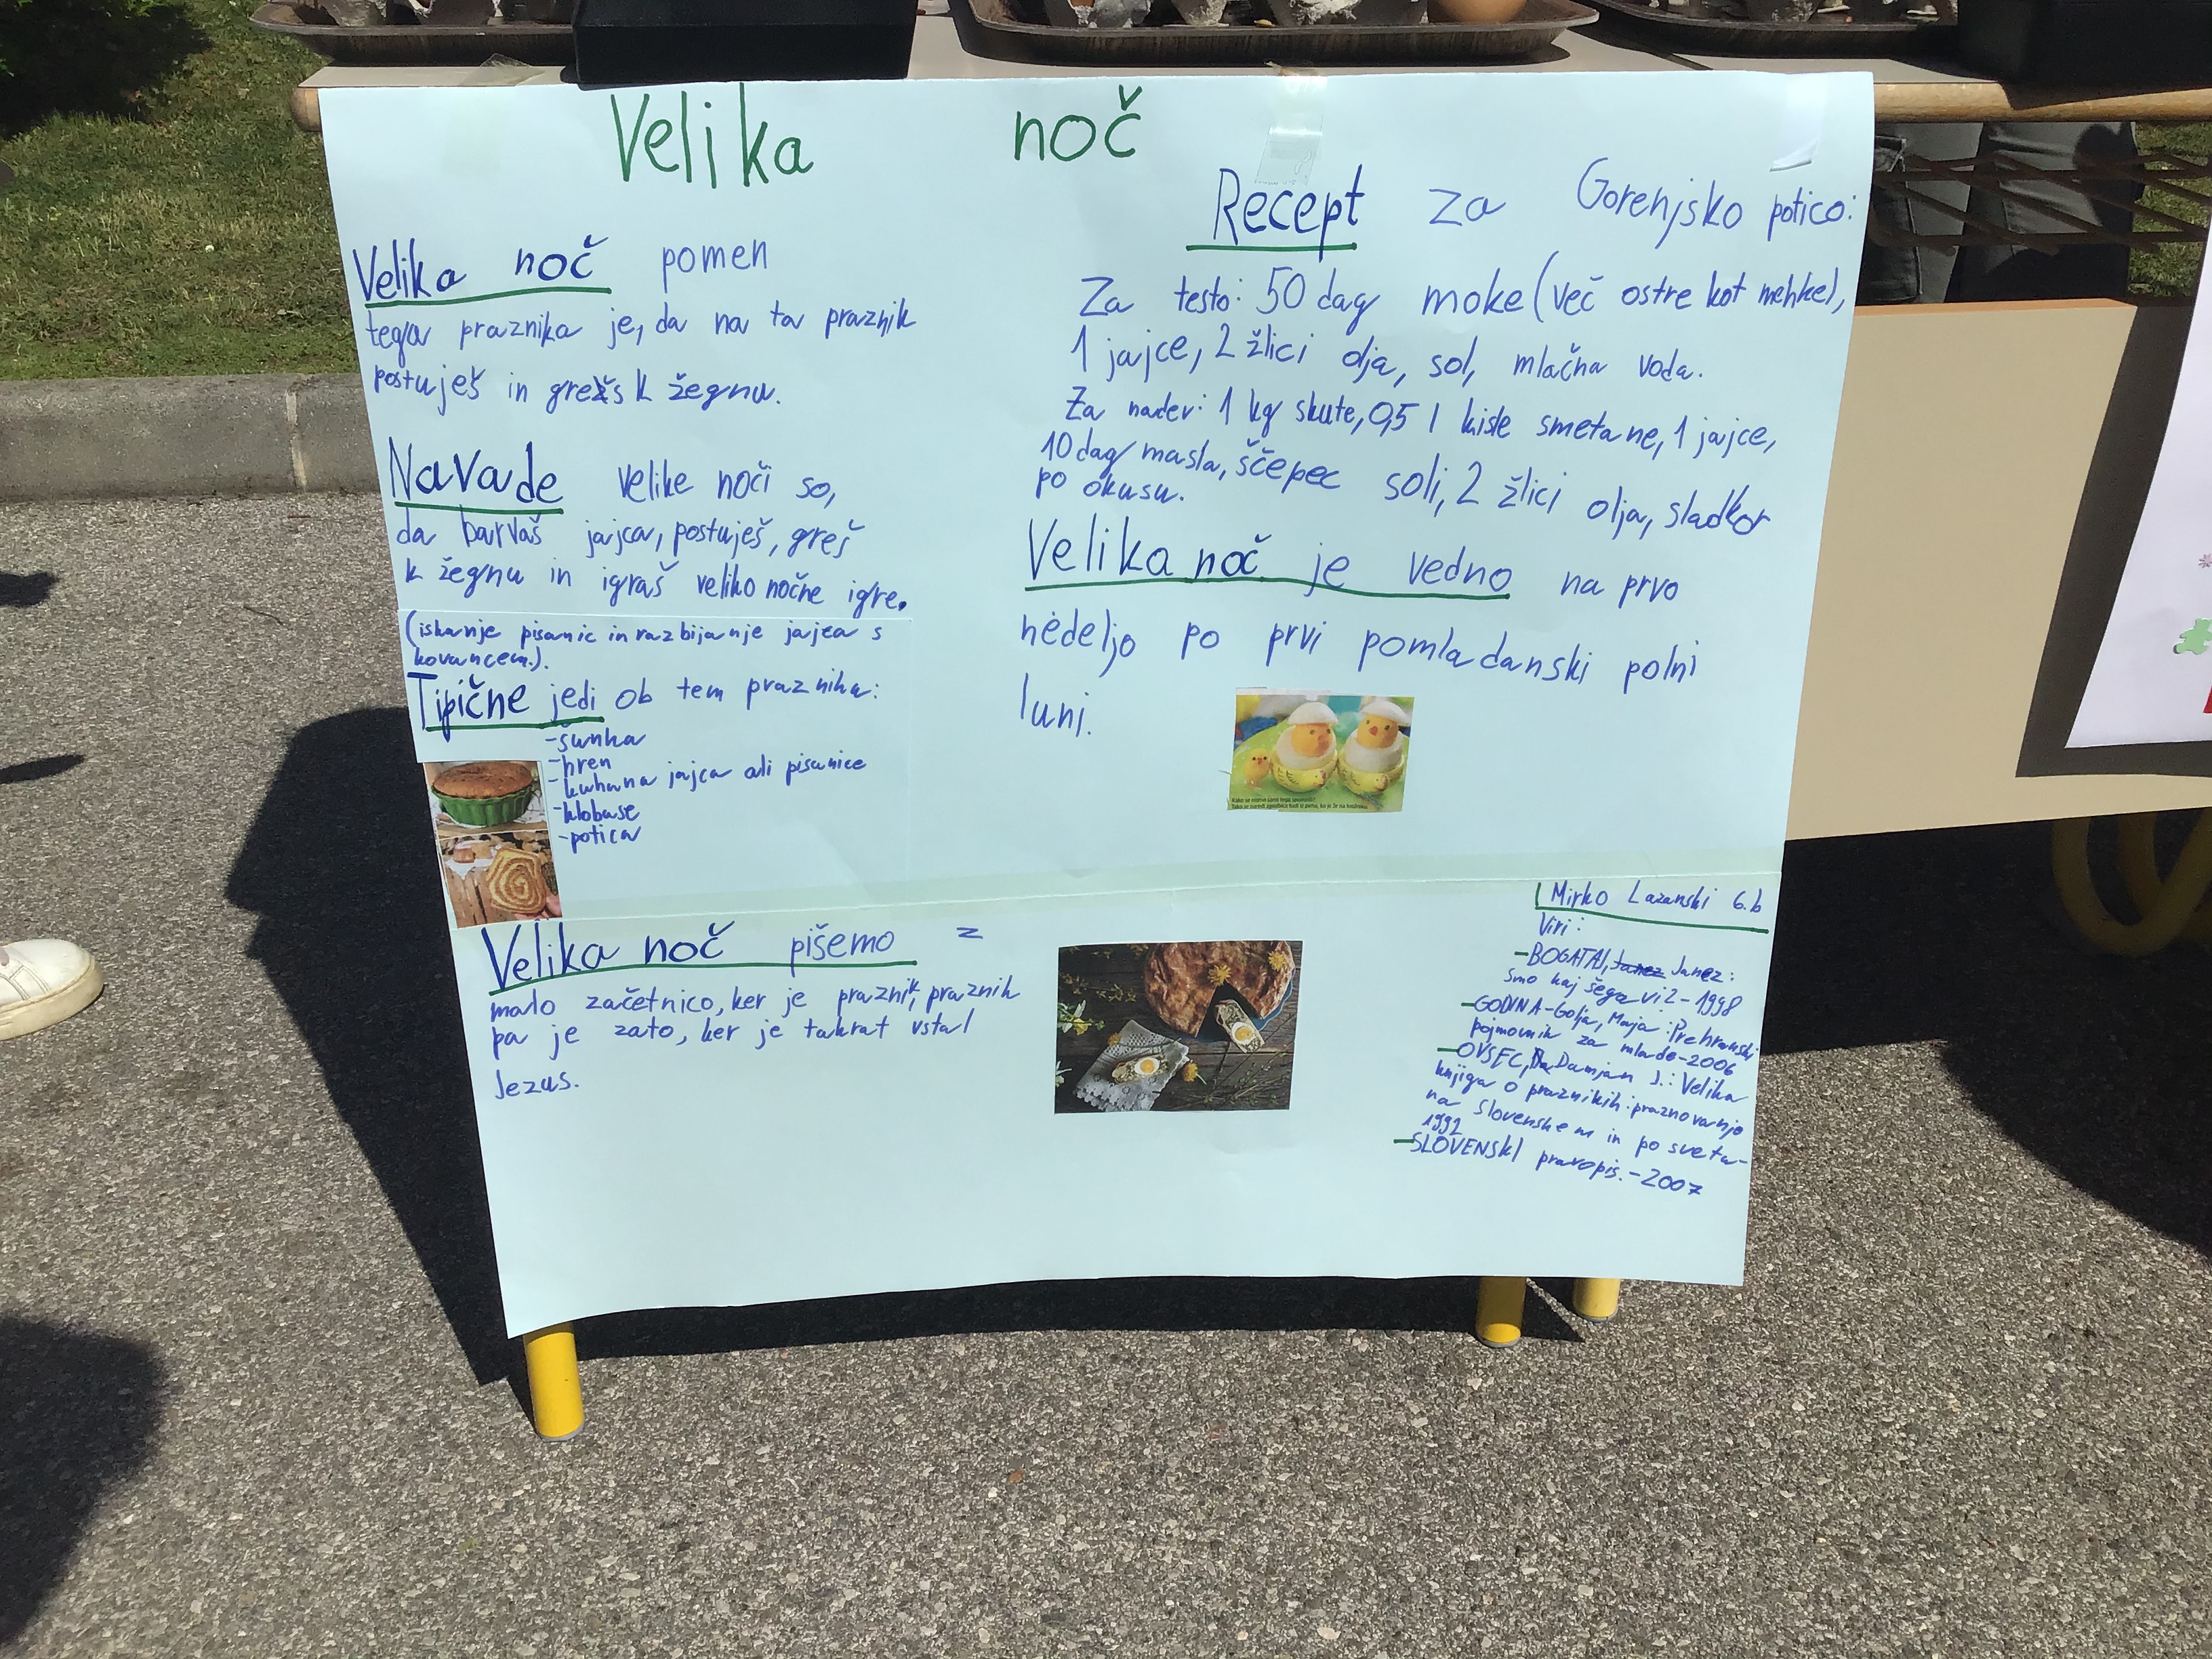 Velika noč
Velika noč pomen
tega praznika je, da na ta praznik
postuješ in greš k žegnu.
Navade velike noči so,
da barvaš jajca, postuješ, greš
k žegnu in igraš veliko nočne igre.
(iskanje pisanic in razbijanje jajca s
kovancem.).
Tipične jedi ob tem prazniku:
-šunka
-hren
-kuhana jajca ali pisanice
-klobase
-potica
Velika noč pišemo z
malo začetnico, ker je praznik, praznik
pa je zato, ker je takrat vstal
Jezus.
Recept za Gorenjsko potico:
Za testo: 50 dag moke (več ostre kot mehke),
1 jajce, 2 žlici olja, sol, mlačna voda.
Za nadev: 1 kg skute, 0,5 l kisle smetane, 1 jajce,
10 dag masla, ščepec soli, 2 žlici olja, sladkor
po okusu.
Velika noč je vedno na prvo
nedeljo po prvi pomladanski polni
luni.
Mirko Lazanski 6.b
Viri:
-BOGATAJ, Janez:
smo kaj šega vi?-1998
-GODINA-Golja, Maja: Prehranski
pojmovnik za mlade-2006
-OVSEC, Damjan J.: Velika
knjiga o praznikih: praznovanje
na Slovenskem in po svetu-
1992
-SLOVENSKI pravopis.-2007